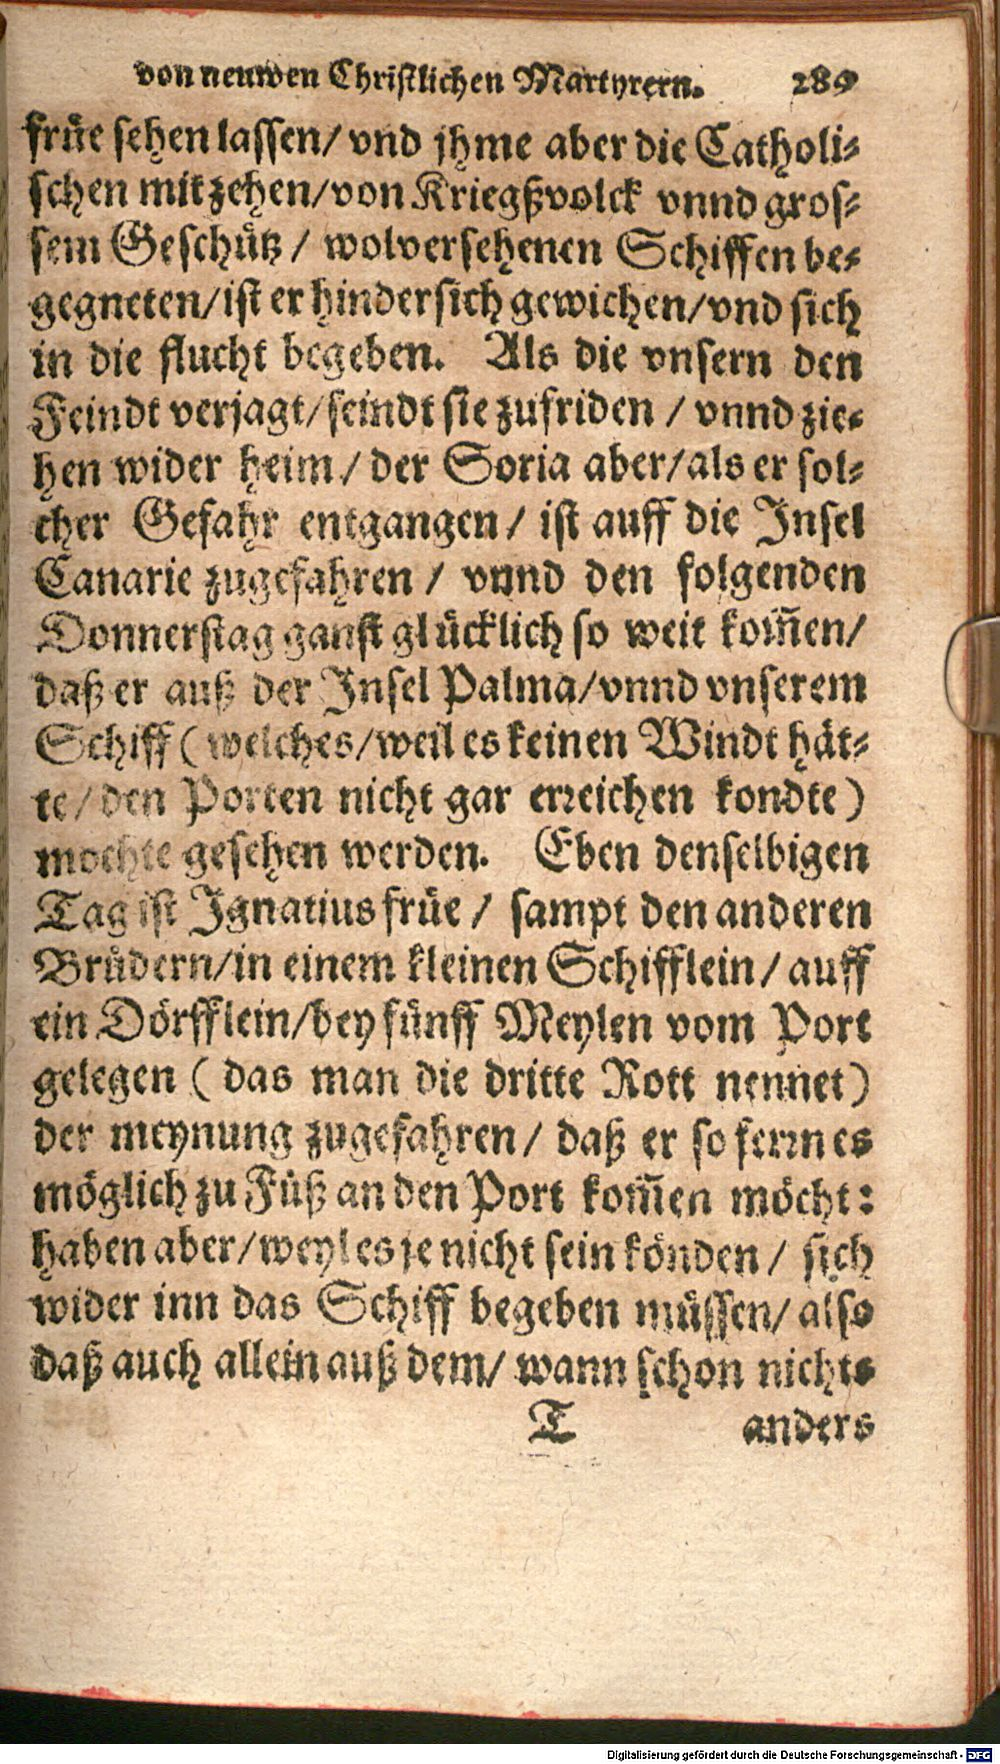 von neuwen Christlichen Martyrern. 289
früe sehen lassen/ vnd jhme aber die Catholi-
schen mit zehen/ von Kriegßvolck vnnd gros-
sem Geschütz / wolversehenen Schiffen be-
gegneten/ ist er hindersich gewichen/ vnd sich
in die flucht begeben. Als die vnsern den
Feindt verjagt/ seindt sie zufriden / vnnd zie-
hen wider heim/ der Soria aber/ als er sol-
cher Gefahr entgangen/ ist auff die Insel
Canarie zugefahren / vnnd den folgenden
Donnerstag gantz glücklich so weit kom̄en/
daß er auß der Insel Palma/ vnnd vnserem
Schiff ( welches/ weil es keinen Windt hät-
te/ den Porten nicht gar erreichen kondte)
mochte gesehen werden. Eben denselbigen
Tag ist Ignatius früe / sampt den anderen
Brüdern/ in einem kleinen Schifflein/ auff
ein Dörfflein/ bey fünff Meylen vom Port
gelegen ( das man die dritte Rott nennet)
der meynung zugefahren/ daß er so ferrn es
möglich zu Füß an den Port kom̄en möcht:
haben aber/ weyl es je nicht sein könden / sich
wider inn das Schiff begeben müssen/ also
daß auch allein auß dem/ wann schon nichts
T anders
Digitalisierung gefördert durch die Deutsche Forschungsgemeinschaft - DFG